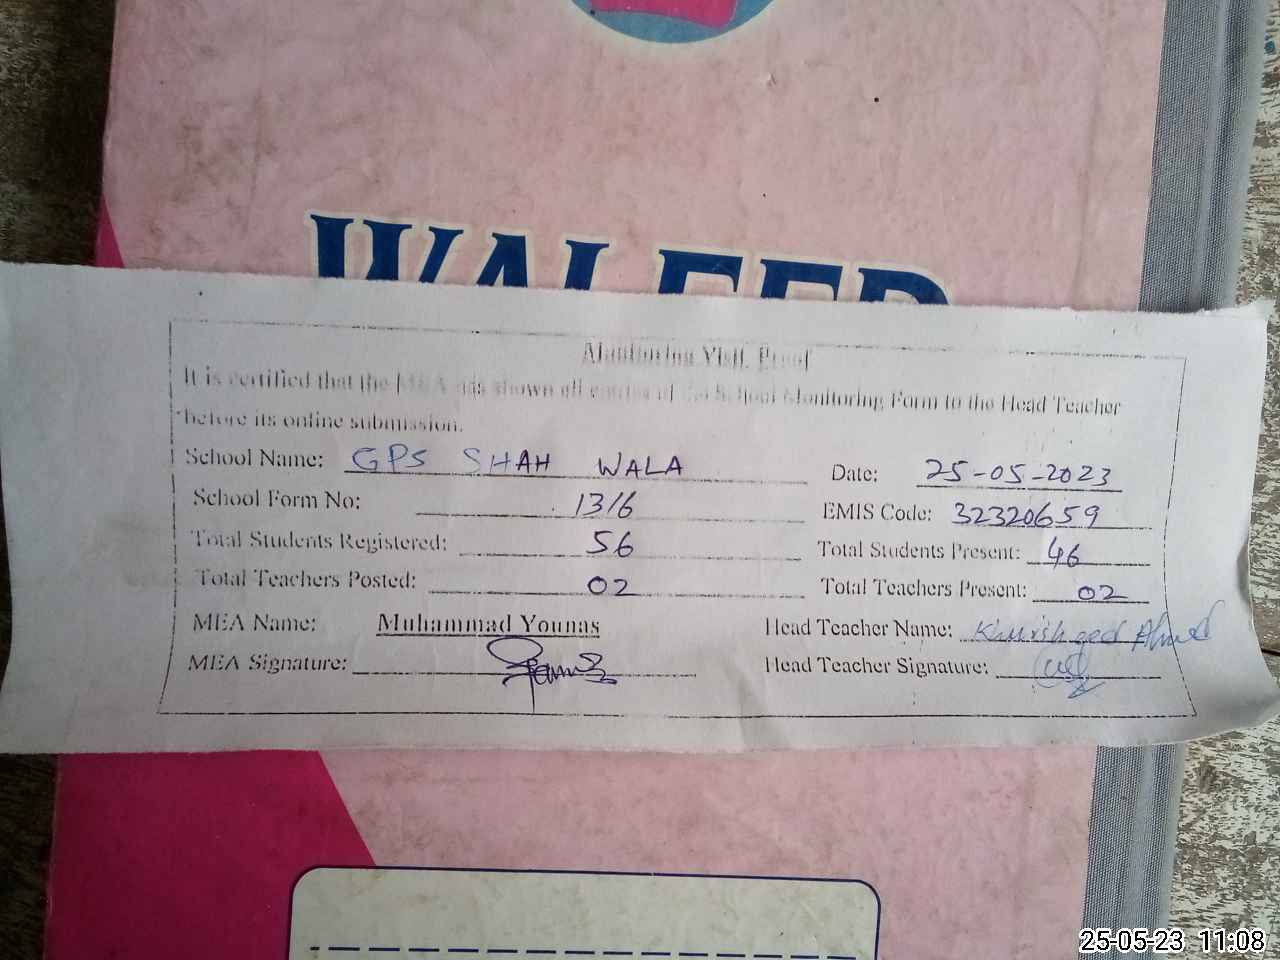 Monitoring Visit Proof
It is certified that the MEA has shown all entries of the School Monitoring Form to the Head Teacher
before its online submission.
School Name: GPS SHAH WALA Date: 25-05-2023
School Form No: 1316 EMIS Code: 32320659
Total Students Registered: 56 Total Students Present: 46
Total Teachers Posted: 02 Total Teachers Present: 02
MEA Name: Muhammad Younas Head Teacher Name: Khursheed Ahmed
MEA Signature: Head Teacher Signature:
25-05-23 11:08